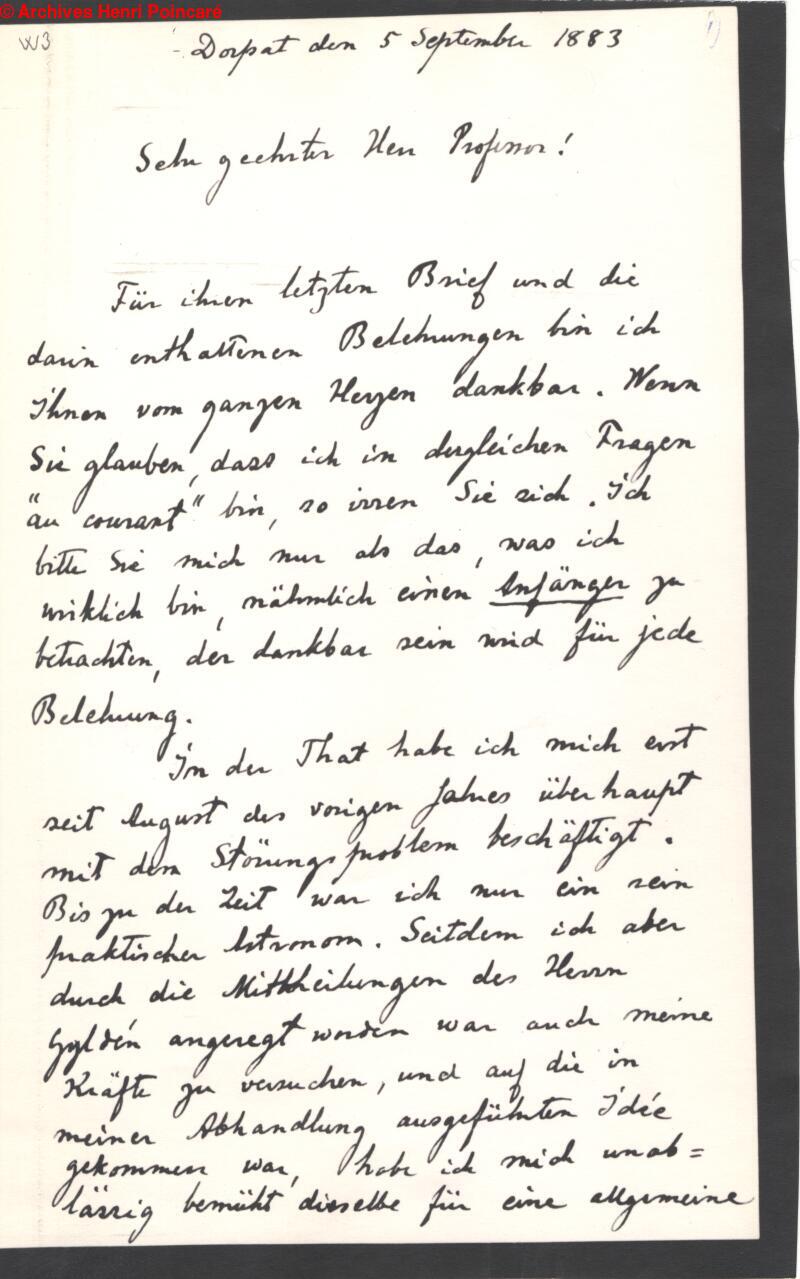 © Archives Henri Poincaré
W3
1)
Dorpat den 5 September 1883
Sehr geehrter Herr Professor!
Für ihren letzten Brief und die
darin enthaltenen Belehrungen bin ich
Ihnen vom ganzen Herzen dankbar. Wenn
Sie glauben, dass ich in dergleichen Fragen
"au courant" bin, so irren Sie sich. Ich
bitte Sie mich nur als das, was ich
wirklich bin, nähmlich einen Anfänger zu
betrachten, der dankbar sein wird für jede
Belehrung.
In der That habe ich mich erst
seit August des vorigen Jahres überhaupt
mit dem Störungsproblem beschäftigt.
Bis zu der Zeit war ich nur ein rein
praktischer Astronom. Seitdem ich aber
durch die Mittheilungen des Herrn
Gyldén angeregt worden war auch meine
Kräfte zu versuchen, und auf die in
meiner Abhandlung ausgeführten Idée
gekommen war, habe ich mich unab=
lässig bemüht dieselbe für eine allgemeine